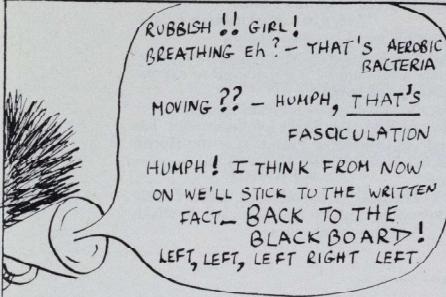 RUBBISH !! GIRL!
BREATHING Eh? - THAT'S AEROBIC
BACTERIA
MOVING ?? - HUMPH, THAT'S
FASCICULATION
HUMPH! I THINK FROM NOW
ON WE'LL STICK TO THE WRITTEN
FACT_ BACK TO THE
BLACK BOARD!
LEFT, LEFT, LEFT RIGHT LEFT